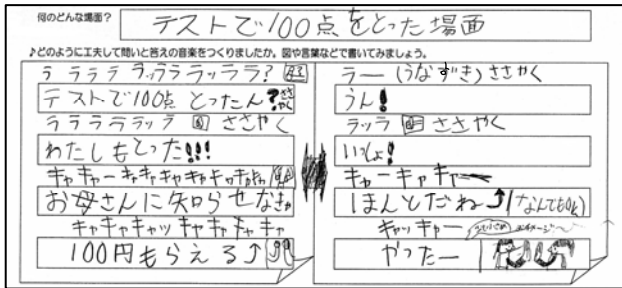 何のどんな場面?
テストで100点をとった場面
♪どのように工夫して問いと答えの音楽をつくりましたか。図や言葉などで書いてみましょう。
ラ ラララ ラッララ ラッララ?
テストで100点 とったん? ささやく
ララララララッラ ささやく
わたしもとった!!!
キャキャーキャキャキャキャキャキャ
お母さんに知らせなきゃ
キャキャキャッキャキャキャキャ
100円もらえる⤴
ラー(うなずき)ささやく
うん!
ラッラ ささやく
いっしょ!
キャーキャキャー
ほんとだね⤴(なんでもOK)
キャッキャー
やったー